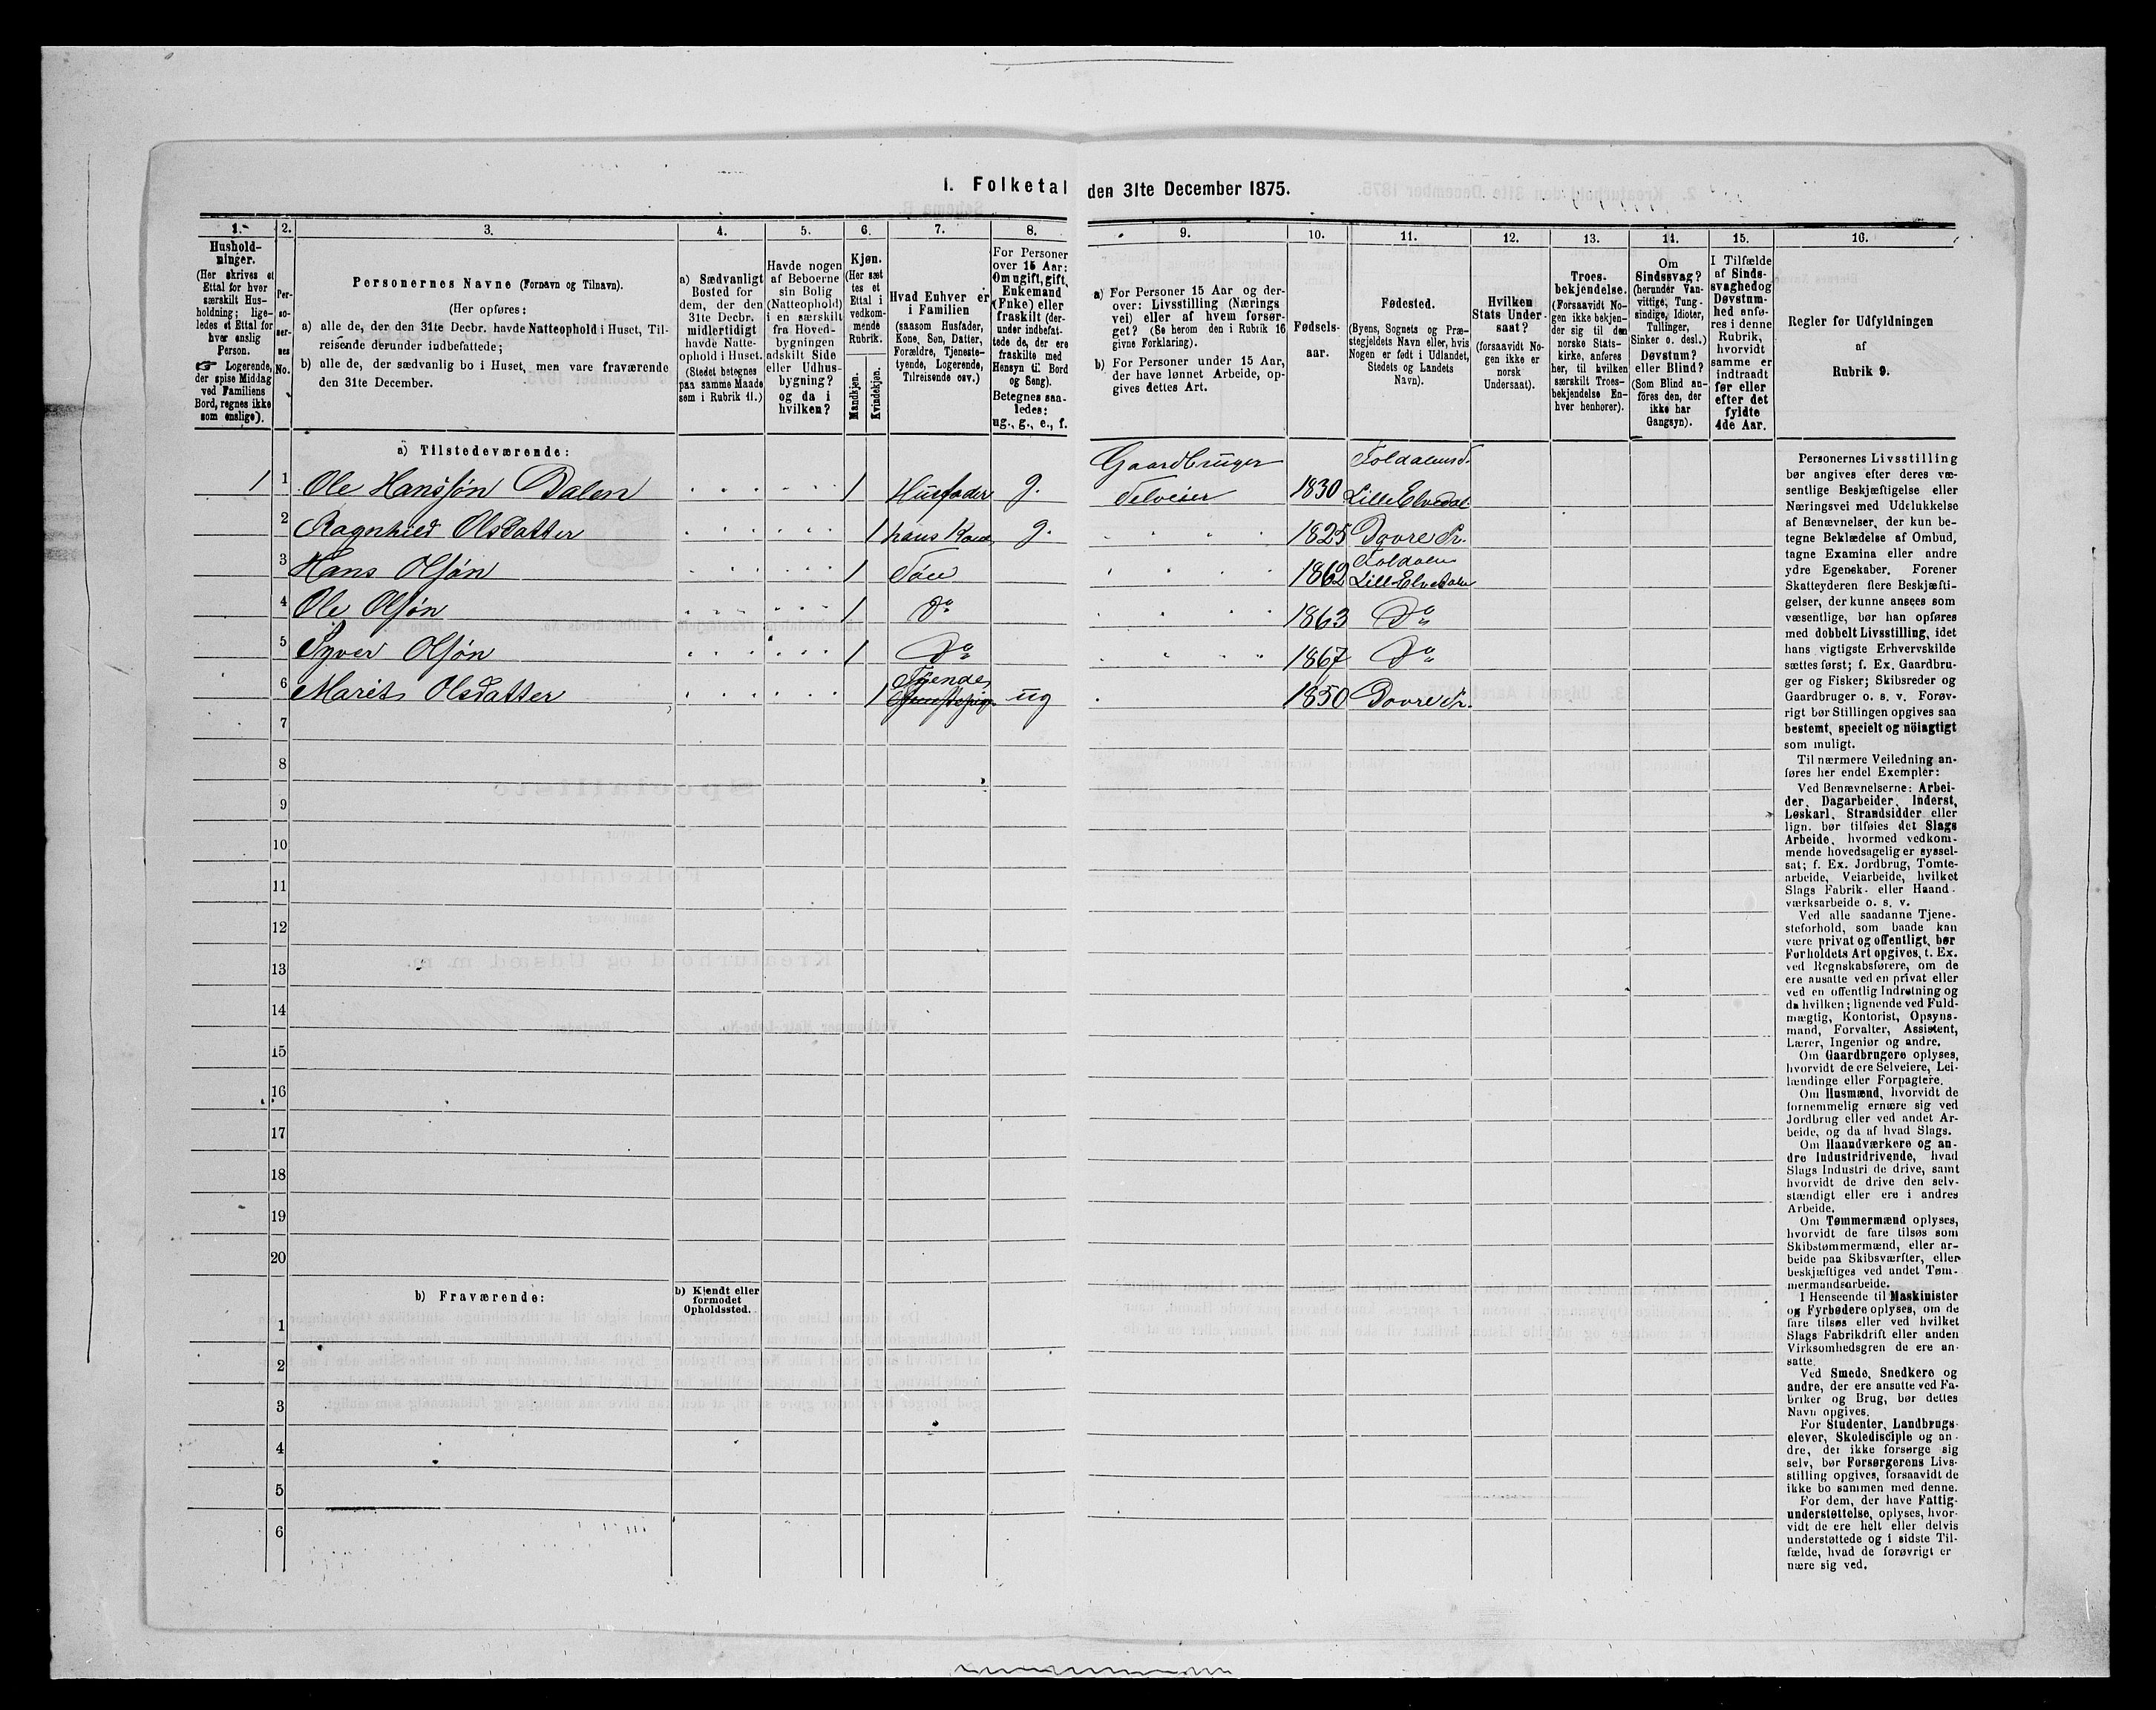 1. Folketal den 31te December 1875.
1.
2.
3.
4.
5.
6.
7.
8.
9.
10.
11.
12.
13.
14.
15.
16.
Hushold-
ninger.
(Her skrives et
Ettal for hver
særskilt Hus-
holdning; lige-
ledes et Ettal for
hver enslig
Person.
☞ Logerende,
der spise Middag
ved Familiens
Bord, regnes ikke
som enslige).
Per-
so-
ner-
nes
No.
Personernes Navne (Fornavn og Tilnavn).
(Her opføres:
a) alle de, der den 31te Decbr. havde Natteophold i Huset, Til-
reisende derunder indbefattede;
b) alle de, der sædvanlig bo i Huset, men vare fraværende
den 31te December.
a) Sædvanligt
Bosted for
dem, der den
31te Decbr.
midlertidigt
havde Natte-
ophold i Huset.
(Stedet betegnes
paa samme Maade
som i Rubrik 11.)
Havde nogen
af Beboerne
sin Bolig
(Natteophold)
i en særskilt
fra Hoved-
bygningen
adskilt Side
eller Udhus-
bygning?
og da i
hvilken?
Kjøn.
(Her sæt
tes et
Ettal i
vedkom-
mende
Rubrik.
Mandkjøn.
Kvindekjøn.
Hvad Enhver er
i Familien
(saasom Husfader,
Kone, Søn, Datter,
Forældre, Tjeneste-
tyende, Logerende,
Tilreisende osv.)
For Personer
over 15 Aar:
Om ugift, gift,
Enkemand
(Enke) eller
fraskilt (der-
under indbefat-
tede de, der ere
fraskilte med
Hensyn til Bord
og Seng).
Betegnes saa-
ledes:
ug., g., e., f.
a) For Personer 15 Aar og der-
over: Livsstilling (Nærings
vei) eller af hvem forsør-
get? (Se herom den i Rubrik 16
givne Forklaring).
b) For Personer under 15 Aar,
der have lønnet Arbeide, op-
gives dettes Art.
Fødsels-
aar.
Fødested.
(Byens, Sognets og Præ-
stegjeldets Navn eller, hvis
Nogen er født i Udlandet,
Stedets og Landets
Navn).
Hvilken
Stats Under-
saat?
(forsaavidt No-
gen ikke er
norsk
Undersaat).
Troes-
bekjendelse.
(Forsaavidt No-
gen ikke bekjen-
der sig til den
norske Stats-
kirke, anføres
her, til hvilken
særskilt Troes-
bekjendelse En-
hver henhører).
Om
Sindssvag?
(herunder Van-
vittige, Tung-
sindige, Idioter,
Tullinger,
Sinker o. desl.)
Døvstum?
eller Blind?
(Som Blind an-
føres den, der
ikke har
Gangsyn).
I Tilfælde
af Sinds-
svaghed og
Døvstum-
hed anfø-
res i denne
Rubrik,
hvorvidt
samme er
indtraadt
før eller
efter det
fyldte
4de Aar.
Regler for Udfyldningen
af
Rubrik 9.
a) Tilstedeværende:
1 1 Ole Hanssøn Dalen 1 Husfader g. Gaardbruger Selveier 1830 Foldalens Lille Elvedal
2 Ragnhild Olsdatter 1 hans Kone g. 1825 Dovre Pr.
3 Hans Olsøn 1 Søn 1862 Foldalen Lille Elvedalen
4 Ole Olsøn 1 Do 1863 Do
5 Syver Olsøn 1 Do 1867 Do
6 Marit Olsdatter 1 Tyende ug 1850 Dovre Pr.
7
8
9
10
11
12
13
14
15
16
17
18
19
20
b) Fraværende:
b) Kjendt eller
formodet
Opholdssted.
1
2
3
4
5
6
Personernes Livsstilling
bør angives efter deres væ-
sentlige Beskjæftigelse eller
Næringsvei med Udelukkelse
af Benævnelser, der kun be-
tegne Beklædelse af Ombud,
tagne Examina eller andre
ydre Egenskaber. Forener
Skatteyderen flere Beskjæfti-
gelser, der kunne ansees som
væsentlige, bør han opføres
med dobbelt Livsstilling, idet
hans vigtigste Erhvervskilde
sættes først; f. Ex. Gaardbru-
ger og Fisker; Skibsreder og
Gaardbruger o. s. v. Forøv-
rigt bør Stillingen opgives saa
bestemt, specielt og nöiagtigt
som muligt.
Til nærmere Veiledning an-
føres her endel Exempler:
Ved Benævnelserne: Arbei-
der, Dagarbeider, Inderst,
Løskarl, Strandsidder eller
lign. bør tilføies det Slags
Arbeide, hvormed vedkom-
mende hovedsagelig er syssel-
sat; f. Ex. Jordbrug, Tomte-
arbeide, Veiarbeide, hvilket
Slags Fabrik- eller Haand-
værksarbeide o. s. v.
Ved alle saadanne Tjene-
steforhold, som baade kan
være privat og offentligt, bør
Forholdets Art opgives, t. Ex.
ved Regnskabsførere, om de
ere ansatte ved en privat eller
ved en offentlig Indretning og
da hvilken; lignende ved Fuld-
mægtig, Kontorist, Opsyns-
mand, Forvalter, Assistent,
Lærer, Ingeniør og andre.
Om Gaardbrugere oplyses,
hvorvidt de ere Selveiere, Lei-
lændinge eller Forpagtere.
Om Husmænd, hvorvidt de
fornemmelig ernære sig ved
Jordbrug eller ved andet Ar-
beide, og da af hvad Slags.
Om Haandværkere og an-
dre Industridrivende, hvad
Slags Industri de drive, samt
hvorvidt de drive den selv-
stændigt eller ere i andres
Arbeide.
Om Tømmermænd oplyses,
hvorvidt de fare tilsøs som
Skibstømmermænd, eller ar-
beide paa Skibsværfter, eller
beskjæftiges ved andet Tøm-
mermandsarbeide.
I Henseende til Maskinister
og Fyrbødere oplyses, om de
fare tilsøs eller ved hvilket
Slags Fabrikdrift eller anden
Virksomhedsgren de ere an-
satte.
Ved Smede, Snedkere og
andre, der ere ansatte ved Fa-
briker og Brug, bør dettes
Navn opgives.
For Studenter, Landbrugs-
elever, Skoledisciple og an-
dre, der ikke forsørge sig
selv, bør Forsørgerens Livs-
stilling opgives, forsaavidt de
ikke bo sammen med denne.
For dem, der have Fattig-
understøttelse, oplyses, hvor-
vidt de ere helt eller delvis
understøttede og i sidste Til-
fælde, hvad de forøvrigt er
nære sig ved.